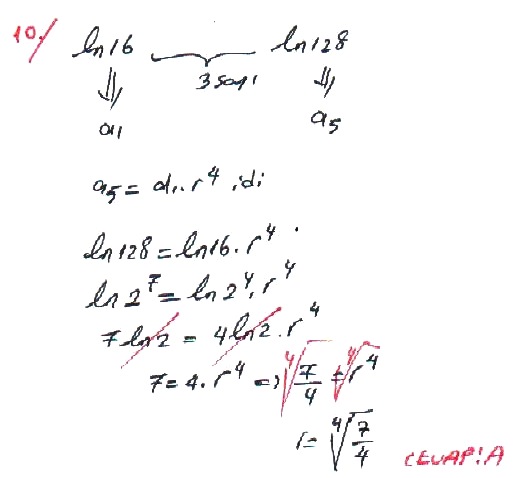 10/ ln16 ln128
3 sayı
a₁ a₅
a₅ = a₁.r⁴ idi
ln128 = ln16.r⁴
ln2⁷ = ln2⁴.r⁴
7ln2 = 4ln2.r⁴
7 = 4.r⁴ => ⁴√(7/4) = ⁴√r⁴
r = ⁴√(7/4) CEVAP:A